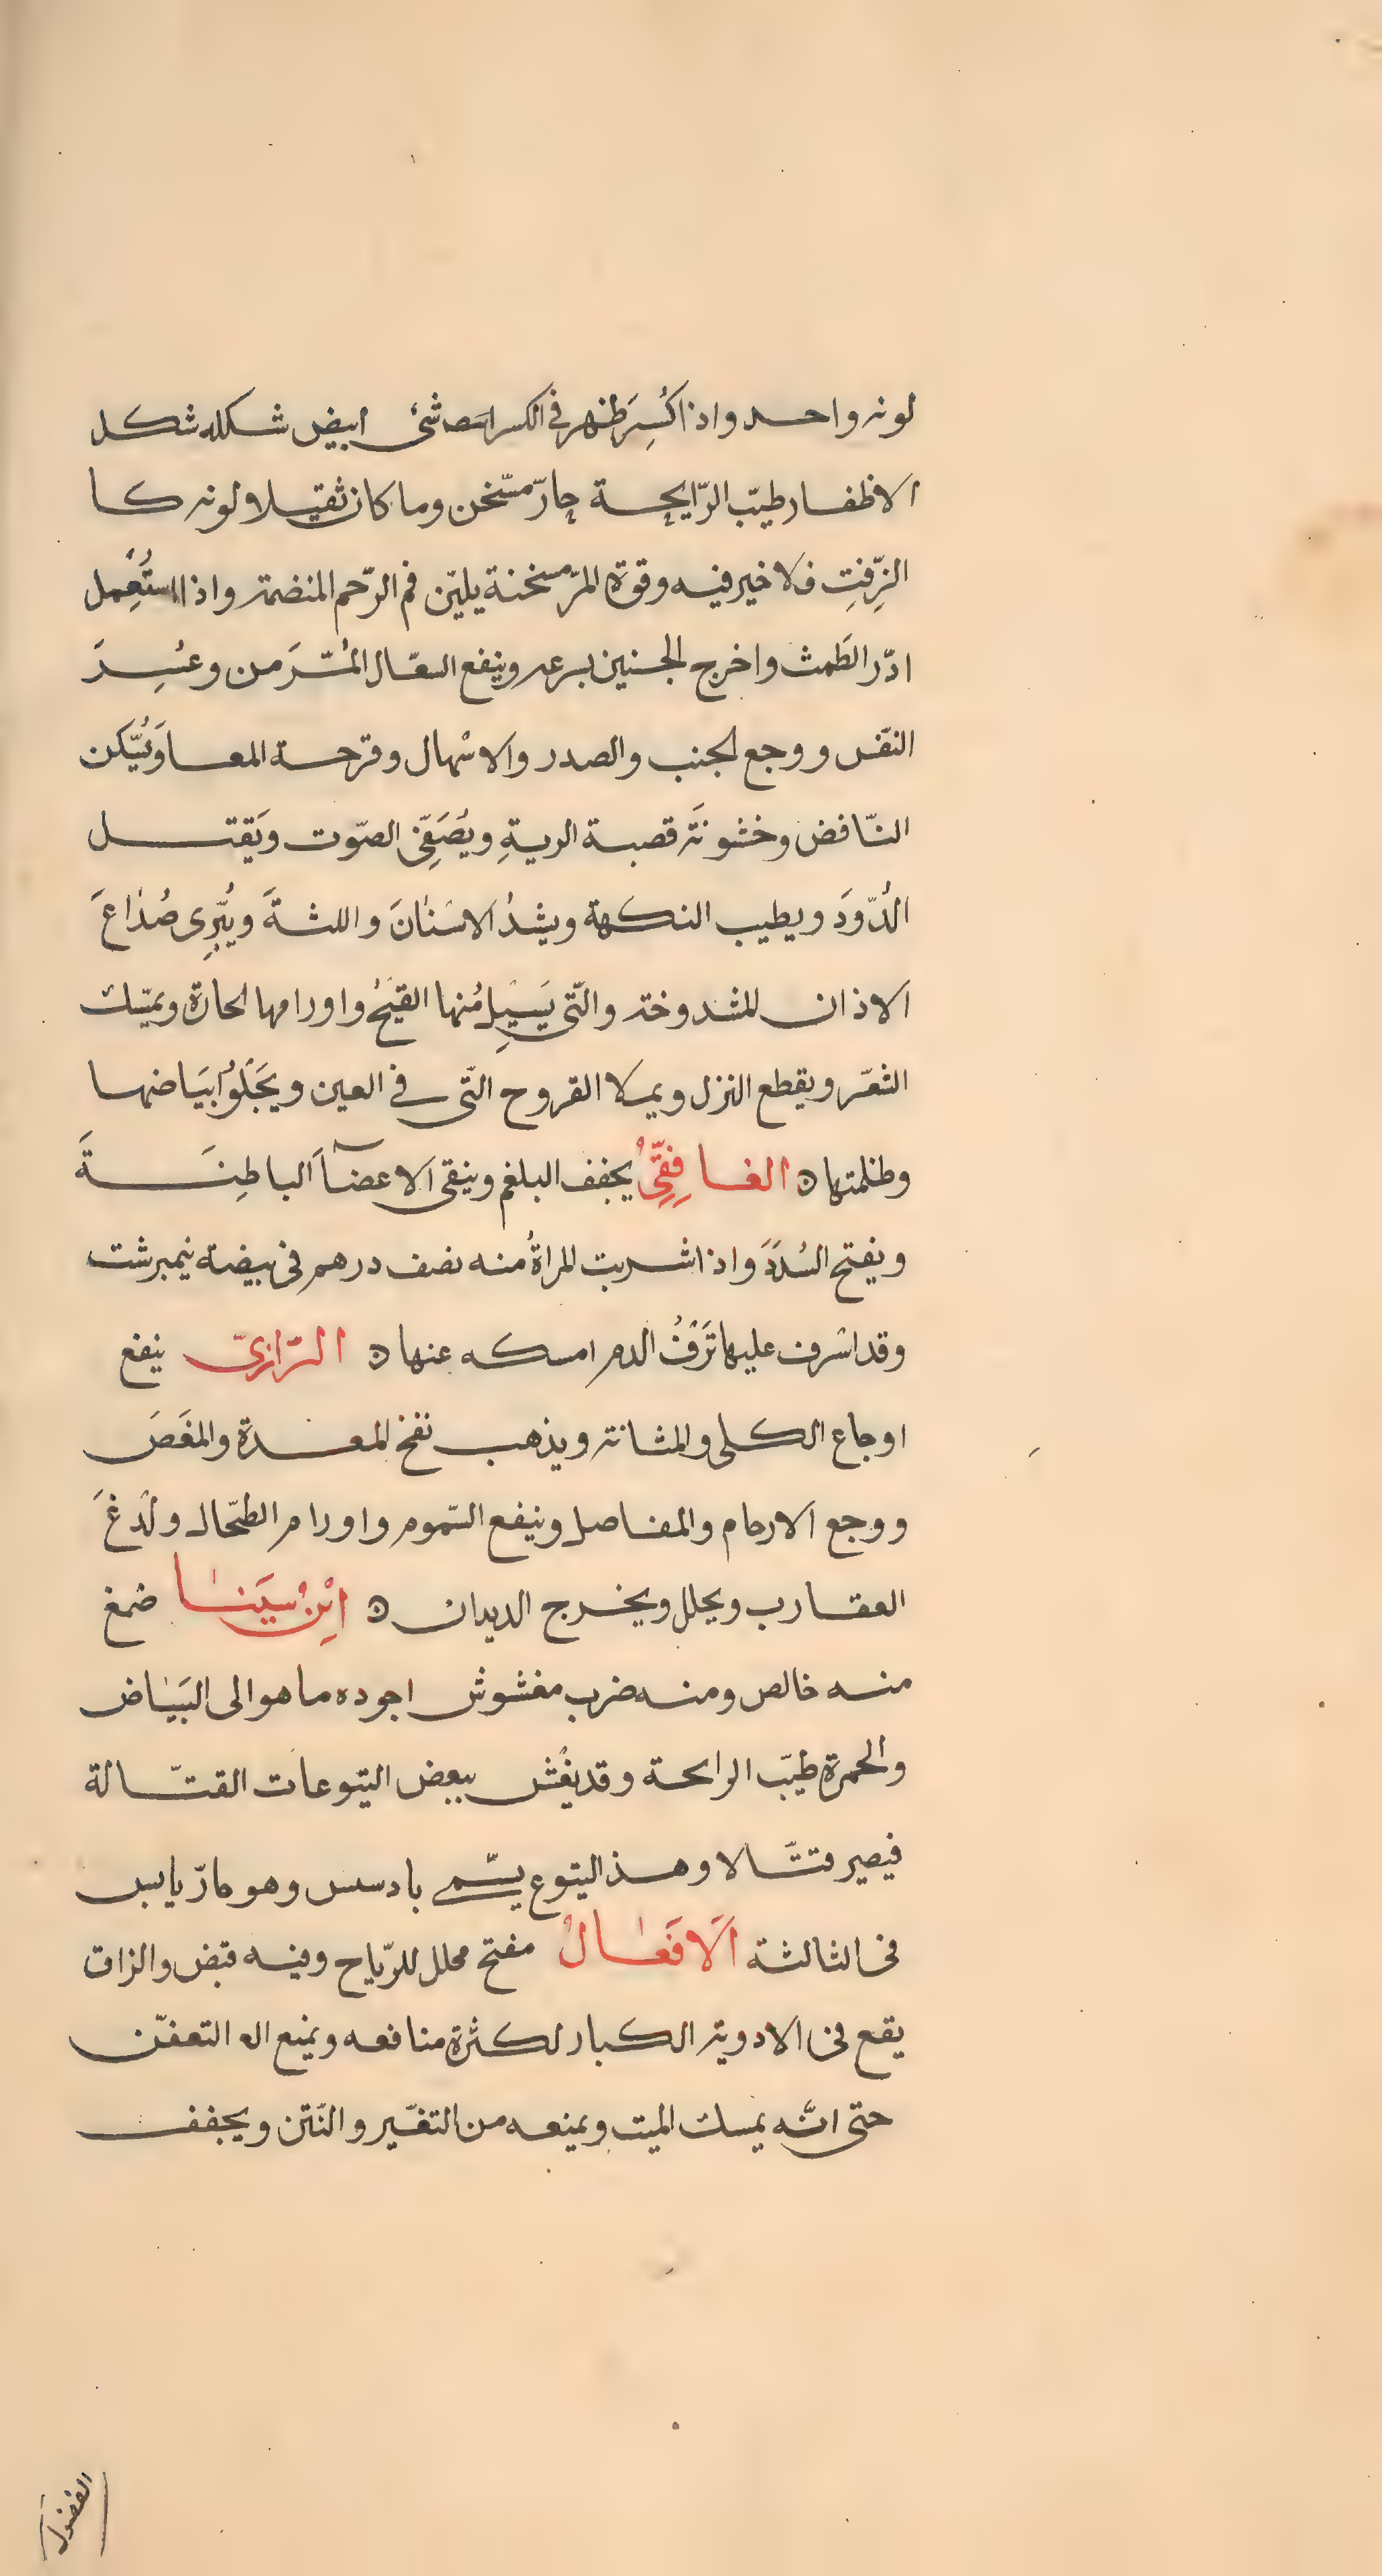 لونه واحد واذا كُسِرَ ظهر في الكسر شئ ابيض شكله شكل
الاظفار طيّب الرّايحة حارّ مسّخن وما كان ثقيلا ولونه كا
الزِّفتِ فلا خير فيه وقوة المرّ مسخنة يليّن فم الرّحم المنضمة واذا استُعْمِل
ادّر الطَمث واخرج الجنين بسرعه وينفع السعّال المُزمن وعُسرَ
النفّس ووجع الجنب والصدر والاسهال وقرحة المعا وَيُسّكن
النّافض وخشونَة قصبة الريةِ ويُصَفِّى الصّوت ويَقتل
الدُّودَ ويطيب النكهة ويشدُ الاسنانَ واللثةَ ويُبرِى صُدَاعَ
الاذان المشدوخة والّتى يَسيِل مُنها القيحُ واورامها الحارة ويمسّك
الشعّر ويقطع النزل ويملا القروح التّى في العين ويَجْلُوا بيَاضها
وظلمتها ۞ الغافِقِّىُ يجفف البلغم وينقى الاعضآَ الباطِنَةَ
ويفتح السُدَدَ واذا شربت المراةُ منه نصف درهم فى بيضة نيمبرشت
وقد اشرف عليها نَزفُ الدم امسكه عنها ۞ الرّازىّ ينفع
اوجاع الكلى والمثانة ويذهب نفخ المعدة والمغَصَ
ووجع الارحام والمفاصل وينفع السّموم واورام الطّحال ولَدغَ
العقارب ويحلل ويخرج الديدان ۞ ابْنِ سينا صمغ
منه خالص ومنه ضرب مغشوش اجوده ما هو الى البَيَاض
والحمرة طيّب الرايحة وقد يغُش ببعض اليتوعات القتّالة
فيصير قتّالا وهذ اليتوع يسّمى بادسس وهو حارّ يابس
فى الثالثة اَلافَعَالُ مفتح محلل للرّياح وفيه قبض والزاق
يقع فى الادوية الكبار لكثرة منافعه ويمنع التعفّن
حتى انّه يمسك الميت ويمنعه من التغيّر والنّتن ويجفف
الفضول